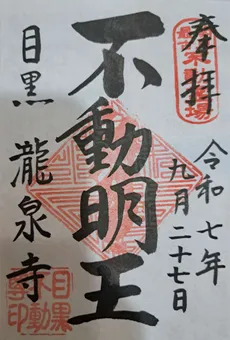 奉拝
令和七年
九月二十七日
不動明王
目黒 瀧泉寺
目黒
不動
尊印